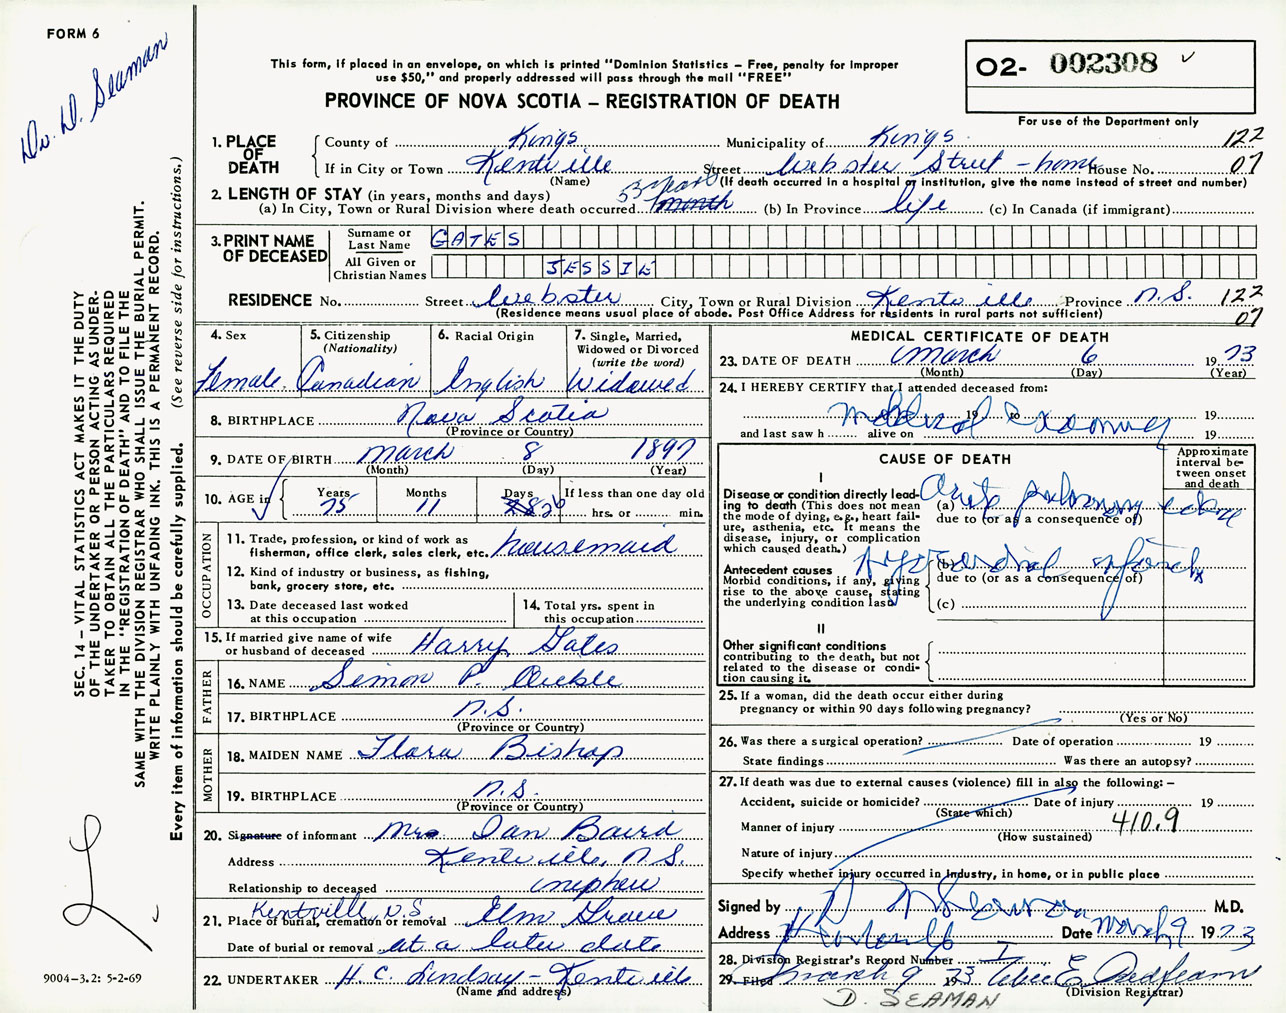 FORM 6
Dr. D. Seaman
This form, if placed in an envelope, on which is printed "Dominion Statistics – Free, penalty for improper
use $50," and properly addressed will pass through the mail "FREE"
PROVINCE OF NOVA SCOTIA – REGISTRATION OF DEATH
O2- 002308
For use of the Department only
1. PLACE OF DEATH
County of Kings Municipality of Kings 122
If in City or Town Kentville Street Webster Street – home House No. 07
(Name) (If death occurred in a hospital or institution, give the name instead of street and number)
2. LENGTH OF STAY (in years, months and days)
(a) In City, Town or Rural Division where death occurred month (b) In Province life (c) In Canada (if immigrant)
3. PRINT NAME OF DECEASED
Surname or Last Name GATES
All Given or Christian Names JESSIE
RESIDENCE No. Street Webster City, Town or Rural Division Kentville Province N.S. 122
(Residence means usual place of abode. Post Office Address for residents in rural parts not sufficient) 07
4. Sex
Female
5. Citizenship
(Nationality)
Canadian
6. Racial Origin
English
7. Single, Married,
Widowed or Divorced
(write the word)
Widowed
8. BIRTHPLACE Nova Scotia
(Province or Country)
9. DATE OF BIRTH March 8 1897
(Month) (Day) (Year)
10. AGE in Years Months Days If less than one day old
75 11 26 hrs. or min.
OCCUPATION
11. Trade, profession, or kind of work as
fisherman, office clerk, sales clerk, etc. housemaid
12. Kind of industry or business, as fishing,
bank, grocery store, etc.
13. Date deceased last worked
at this occupation
14. Total yrs. spent in
this occupation
15. If married give name of wife
or husband of deceased Harry Gates
FATHER
16. NAME Simon P.
17. BIRTHPLACE N.S.
(Province or Country)
MOTHER
18. MAIDEN NAME Flora Bishop
19. BIRTHPLACE N.S.
(Province or Country)
20. Signature of informant Mrs Ian Baird
Address Kentville, N.S.
Relationship to deceased nephew
Kentville NS
21. Place of burial, cremation or removal Elm Grove
Date of burial or removal at a later date
22. UNDERTAKER H. C. Lindsay – Kentville
(Name and address)
MEDICAL CERTIFICATE OF DEATH
23. DATE OF DEATH March 6 1973
(Month) (Day) (Year)
24. I HEREBY CERTIFY that I attended deceased from:
19 to 19
Medical Examiner
and last saw h alive on 19
CAUSE OF DEATH
Approximate
interval be-
tween onset
and death
I
Disease or condition directly lead-
ing to death (This does not
mean the mode of dying, e.g., heart fail-
ure, asthenia, etc. It means the
disease, injury, or complication
which caused death.)
(a) Acute pulmonary edema
due to (or as a consequence of)
Antecedent causes
Morbid conditions, if any, giving
rise to the above cause, stating
the underlying condition last.
(b) Myocardial infarct
due to (or as a consequence of)
(c)
II
Other significant conditions
contributing to the death, but not
related to the disease or condi-
tion causing it.
25. If a woman, did the death occur either during
pregnancy or within 90 days following pregnancy?
(Yes or No)
26. Was there a surgical operation? Date of operation 19
State findings Was there an autopsy?
27. If death was due to external causes (violence) fill in also the following: –
Accident, suicide or homicide? Date of injury 19
(State which)
Manner of injury 410.9
(How sustained)
Nature of injury
Specify whether injury occurred in Industry, in home, or in public place
Signed by D M Seaman M.D.
Address Kentville Date March 9 1973
28. Division Registrar's Record Number
29. Filed March 9 1973
(Division Registrar)
D. SEAMAN
SEC. 14 – VITAL STATISTICS ACT MAKES IT THE DUTY
OF THE UNDERTAKER OR PERSON ACTING AS UNDER-
TAKER TO OBTAIN ALL THE PARTICULARS REQUIRED
IN THE "REGISTRATION OF DEATH" AND TO FILE THE
SAME WITH THE DIVISION REGISTRAR WHO SHALL ISSUE THE BURIAL PERMIT.
WRITE PLAINLY WITH UNFADING INK. THIS IS A PERMANENT RECORD.
Every item of information should be carefully supplied. (See reverse side for instructions.)
9004–3.2: 5-2-69